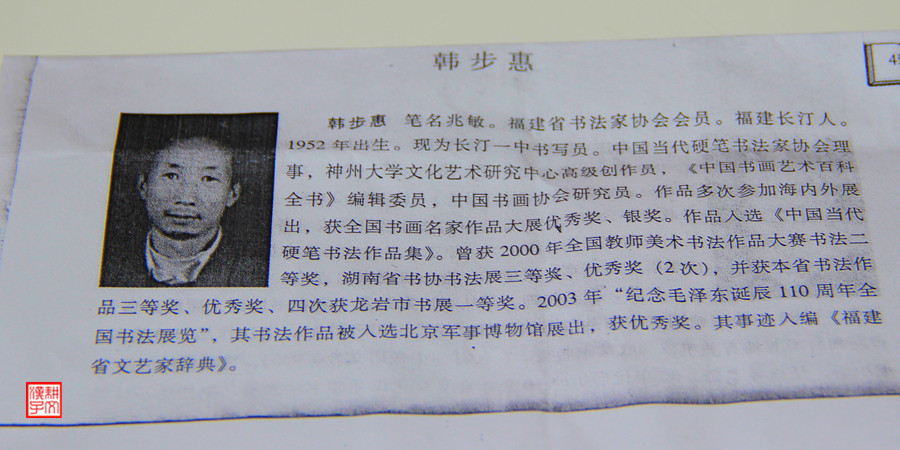 韩步惠
韩步惠 笔名兆敏。福建省书法家协会会员。福建长汀人。
1952年出生。现为长汀一中书写员。中国当代硬笔书法家协会理
事，神州大学文化艺术研究中心高级创作员，《中国书画艺术百科
全书》编辑委员，中国书画协会研究员。作品多次参加海内外展
出，获全国书画名家作品大展优秀奖、银奖。作品入选《中国当代
硬笔书法作品集》。曾获2000年全国教师美术书法作品大赛书法二
等奖，湖南省书协书法展三等奖、优秀奖（2次），并获本省书法作
品三等奖、优秀奖、四次获龙岩市书展一等奖。2003年“纪念毛泽东诞辰110周年全
国书法展览”，其书法作品被入选北京军事博物馆展出，获优秀奖。其事迹入编《福建
省文艺家辞典》。